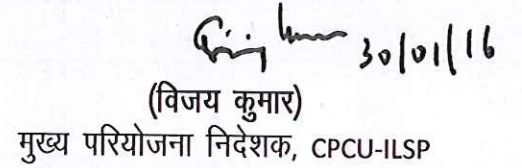 30/01/16
(विजय कुमार)
मुख्य परियोजना निदेशक, CPCU-ILSP